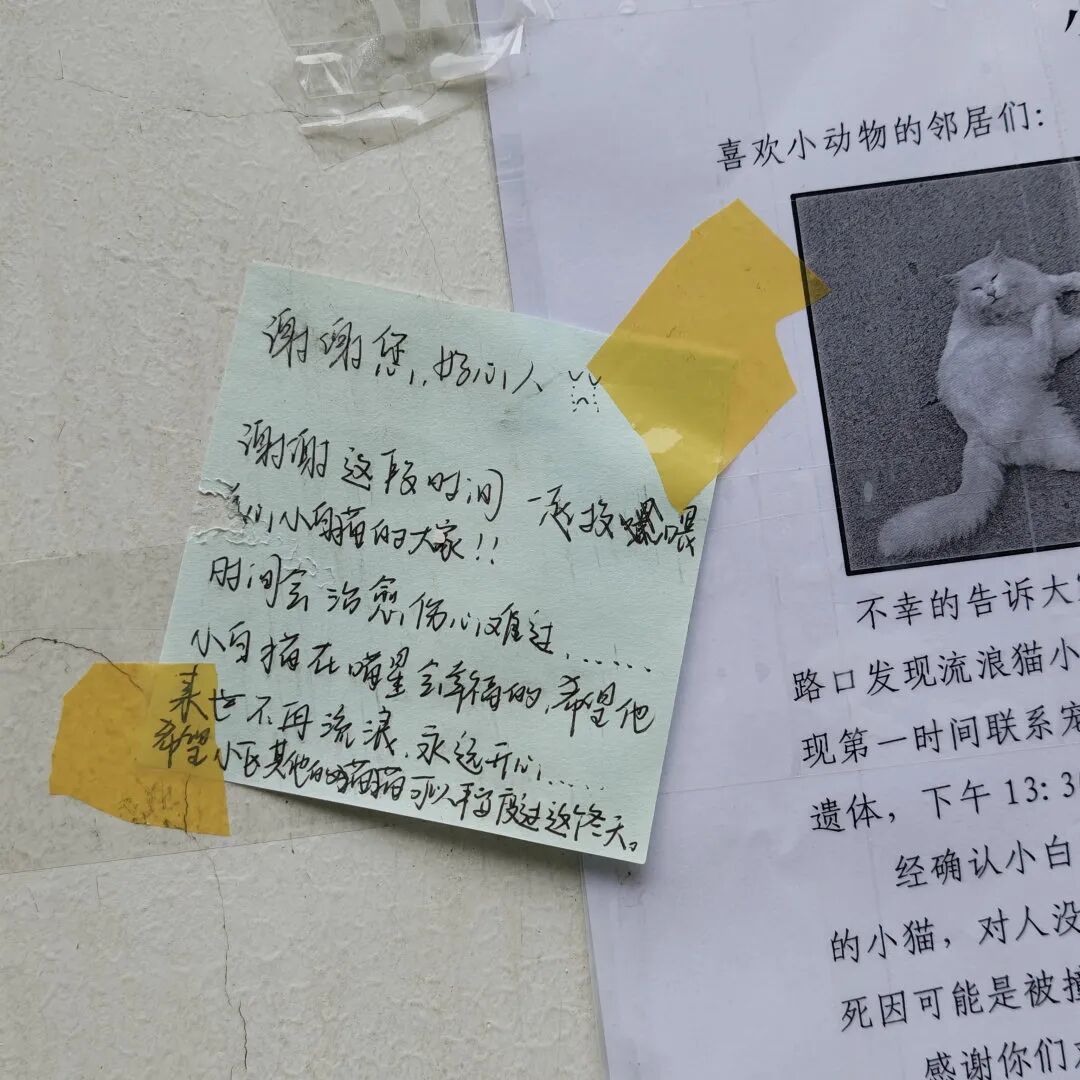 谢谢您,好心人
谢谢这段时间一直投喂
小白猫的大家!!
时间会治愈伤心难过......
小白猫在喵星会幸福的,希望他
来世不再流浪,永远开心....
希望小区其他的猫猫可以平安度过这个冬天。
喜欢小动物的邻居们:
不幸的告诉大
路口发现流浪猫小
现第一时间联系宠
遗体,下午13:3
经确认小白
的小猫,对人没
死因可能是被撞
感谢你们